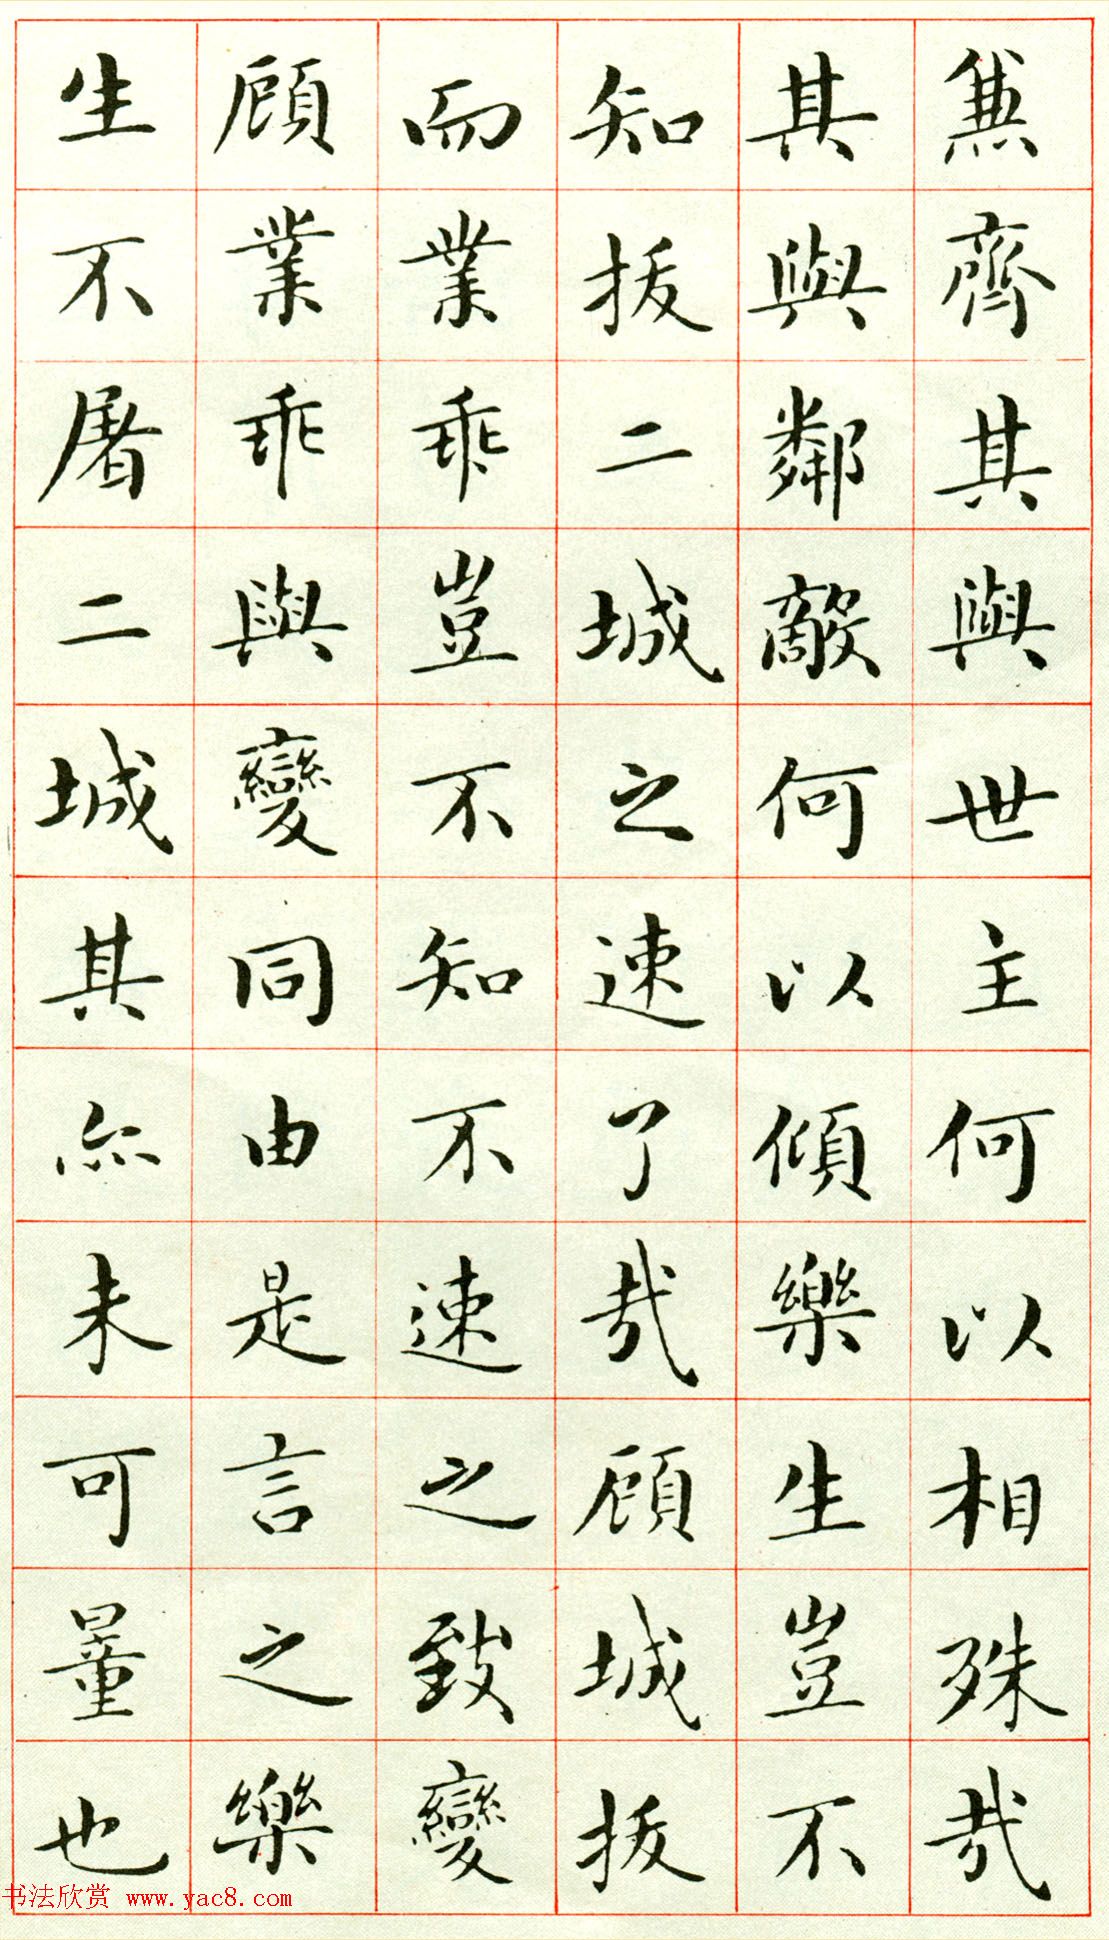 兼齊其與世主何以相殊哉
其與鄰敵何以傾樂生豈不
知拔二城之速了哉顧城拔
而業乖豈不知不速之致變
顧業乖與變同由是言之樂
生不屠二城其亦未可量也
书法欣赏 www.yac8.com